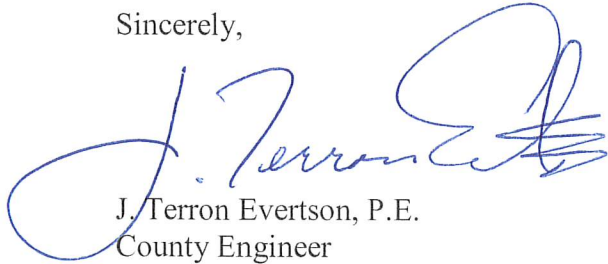 Sincerely,
J. Terron Evertson
J. Terron Evertson, P.E.
County Engineer